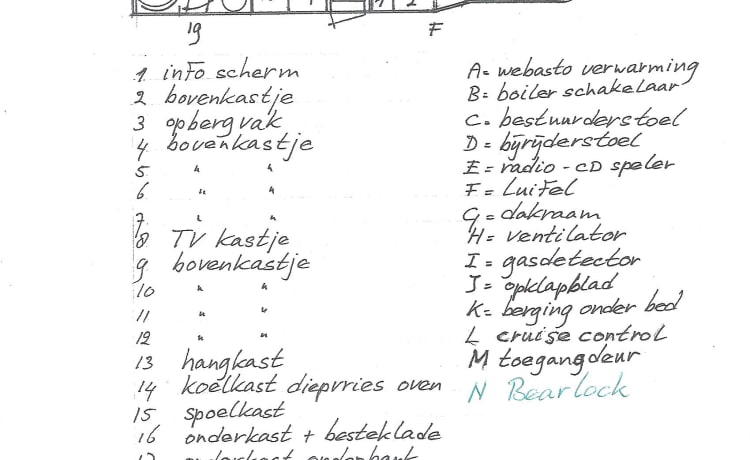 19
F
1 info scherm
2 bovenkastje
3 opbergvak
4 bovenkastje
5 " "
6 " "
7 " "
8 TV kastje
9 bovenkastje
10 " "
11 " "
12 " "
13 hangkast
14 koelkast diepvries oven
15 spoelkast
16 onderkast + besteklade
17 onderkast onderbank
A= webasto verwarming
B= boiler schakelaar
C= bestuurderstoel
D= bijrijderstoel
E= radio - CD speler
F= Luifel
G= dakraam
H= ventilator
I= gasdetector
J= opklapblad
K= berging onder bed
L cruise control
M toegangdeur
N Bearlock